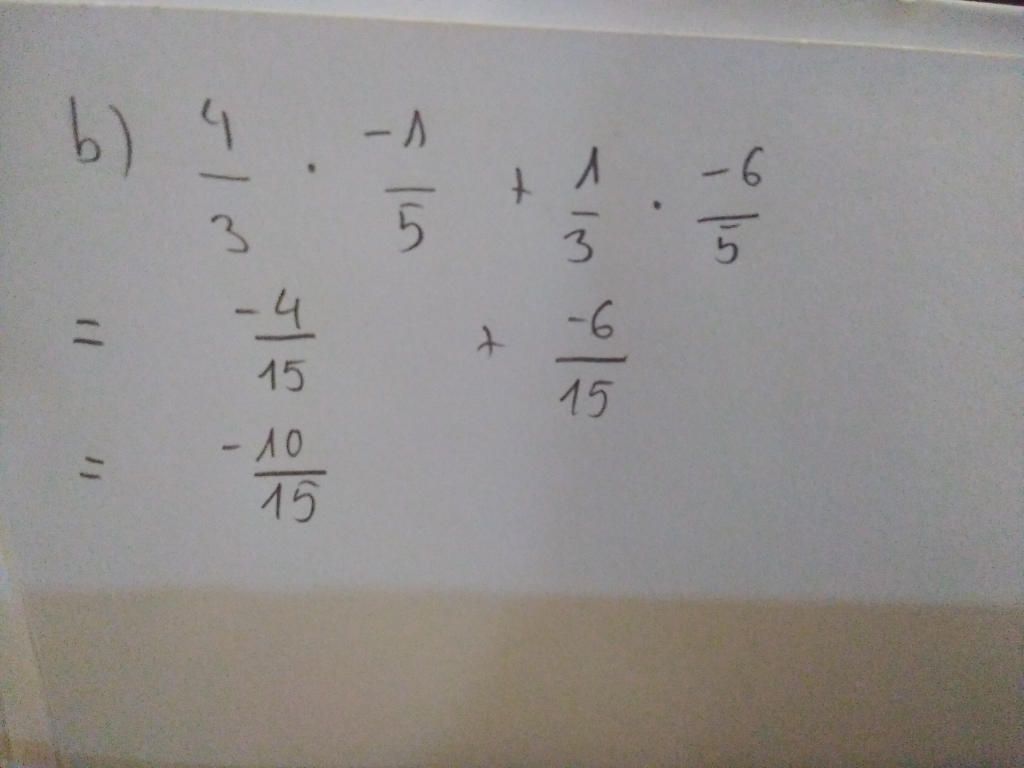 b) 4/3 · -1/5 + 1/3 · -6/5
= -4/15 + -6/15
= -10/15